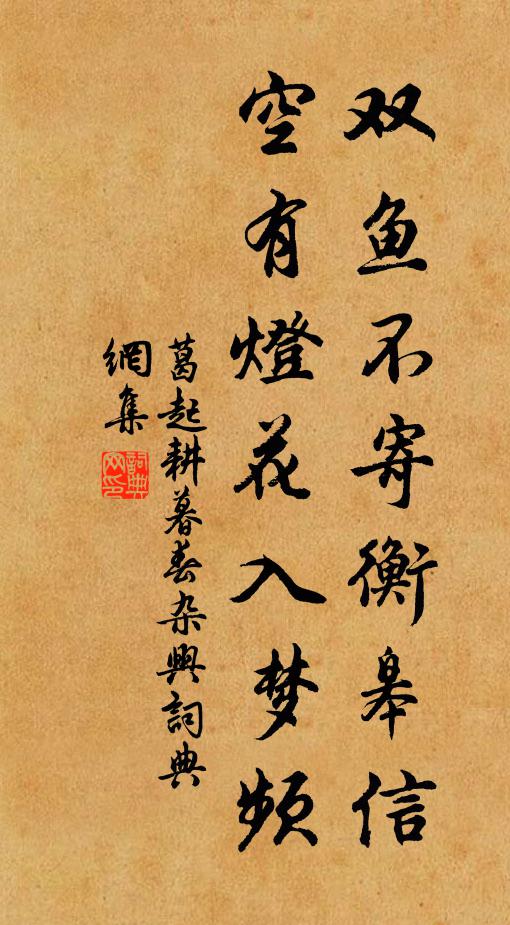 双鱼不寄衡皋信
空有燈花入梦频
葛起耕暮春杂興詞典
網集
詞典網印